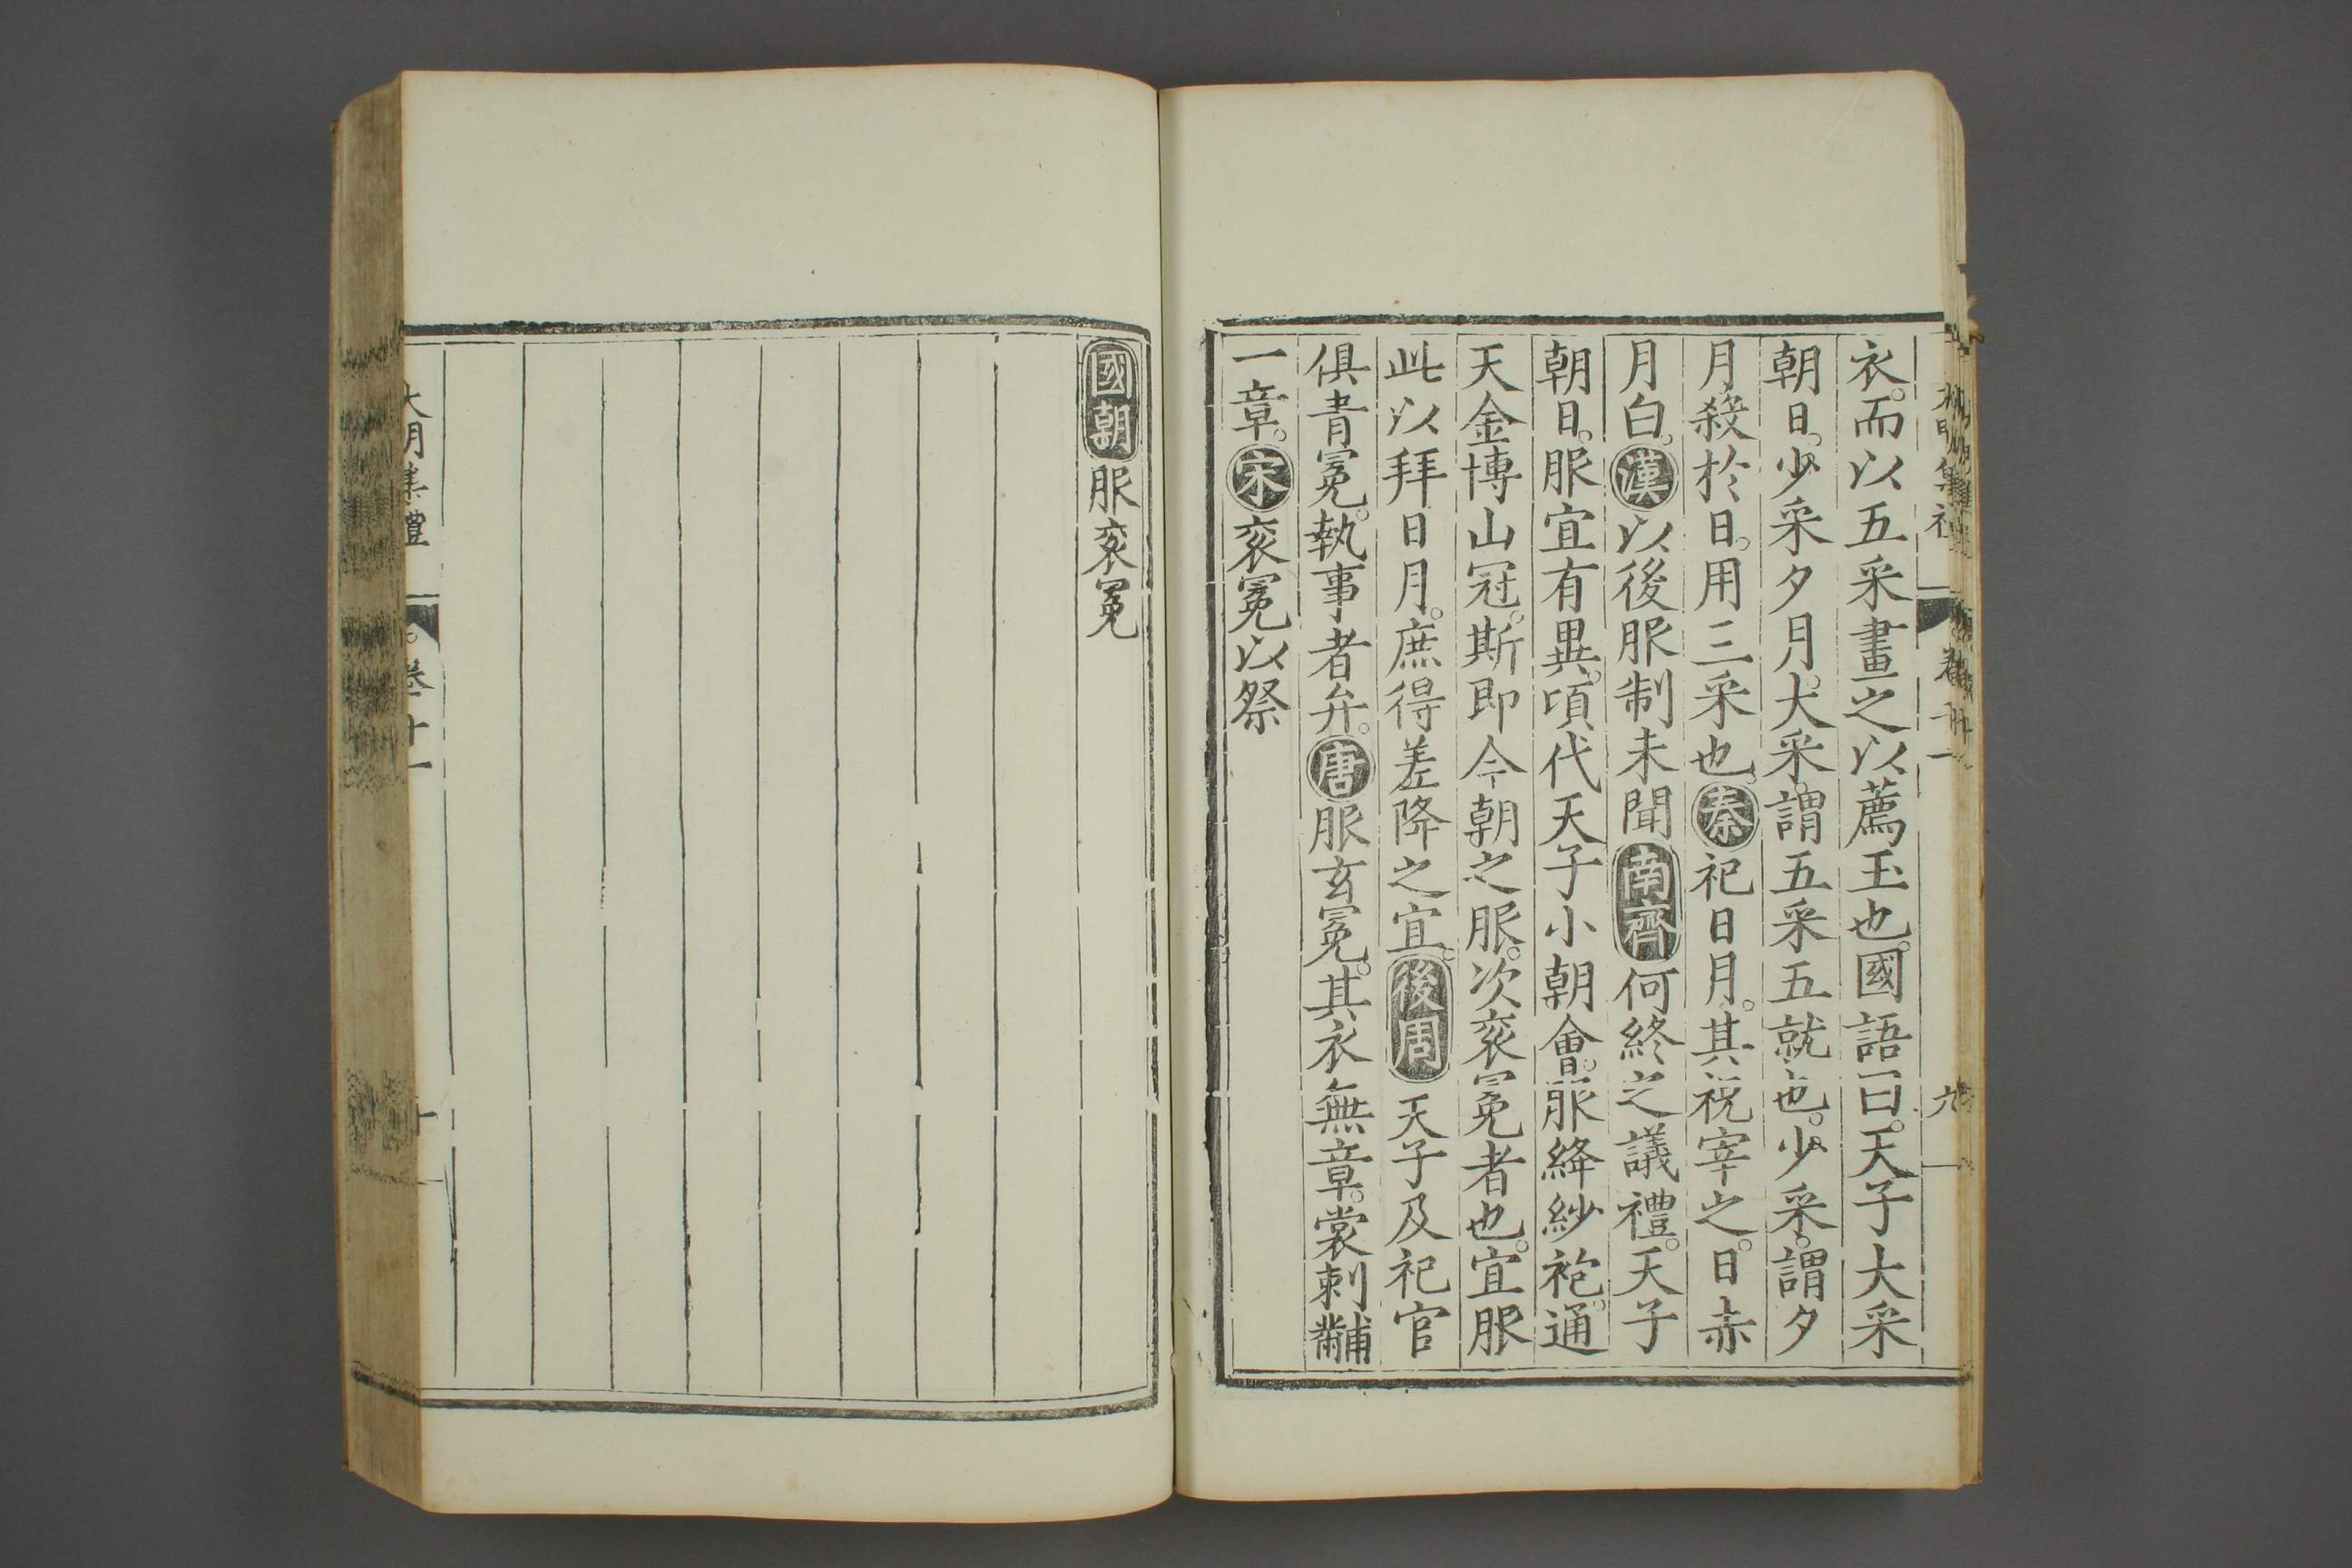 衣。而以五采畫之以薦玉也。國語曰。天子大采
朝日。少采夕月。大采。謂五采五就也。少采。謂夕
月殺於日。用三采也。秦祀日月。其祝宰之。日赤
月白。漢以後服制未聞南齊何終之議禮。天子
朝日。服宜有異。頃代天子小朝會。服絳紗袍。通
天金博山冠。斯即今朝之服。次袞冕者也。宜服
此以拜日月。庶得差降之宜。後周天子及祀官
俱青冕。執事者弁。唐服玄冕。其衣無章。裳刺黼
一章。宋袞冕以祭
國朝服袞冕
大明集禮 卷十一